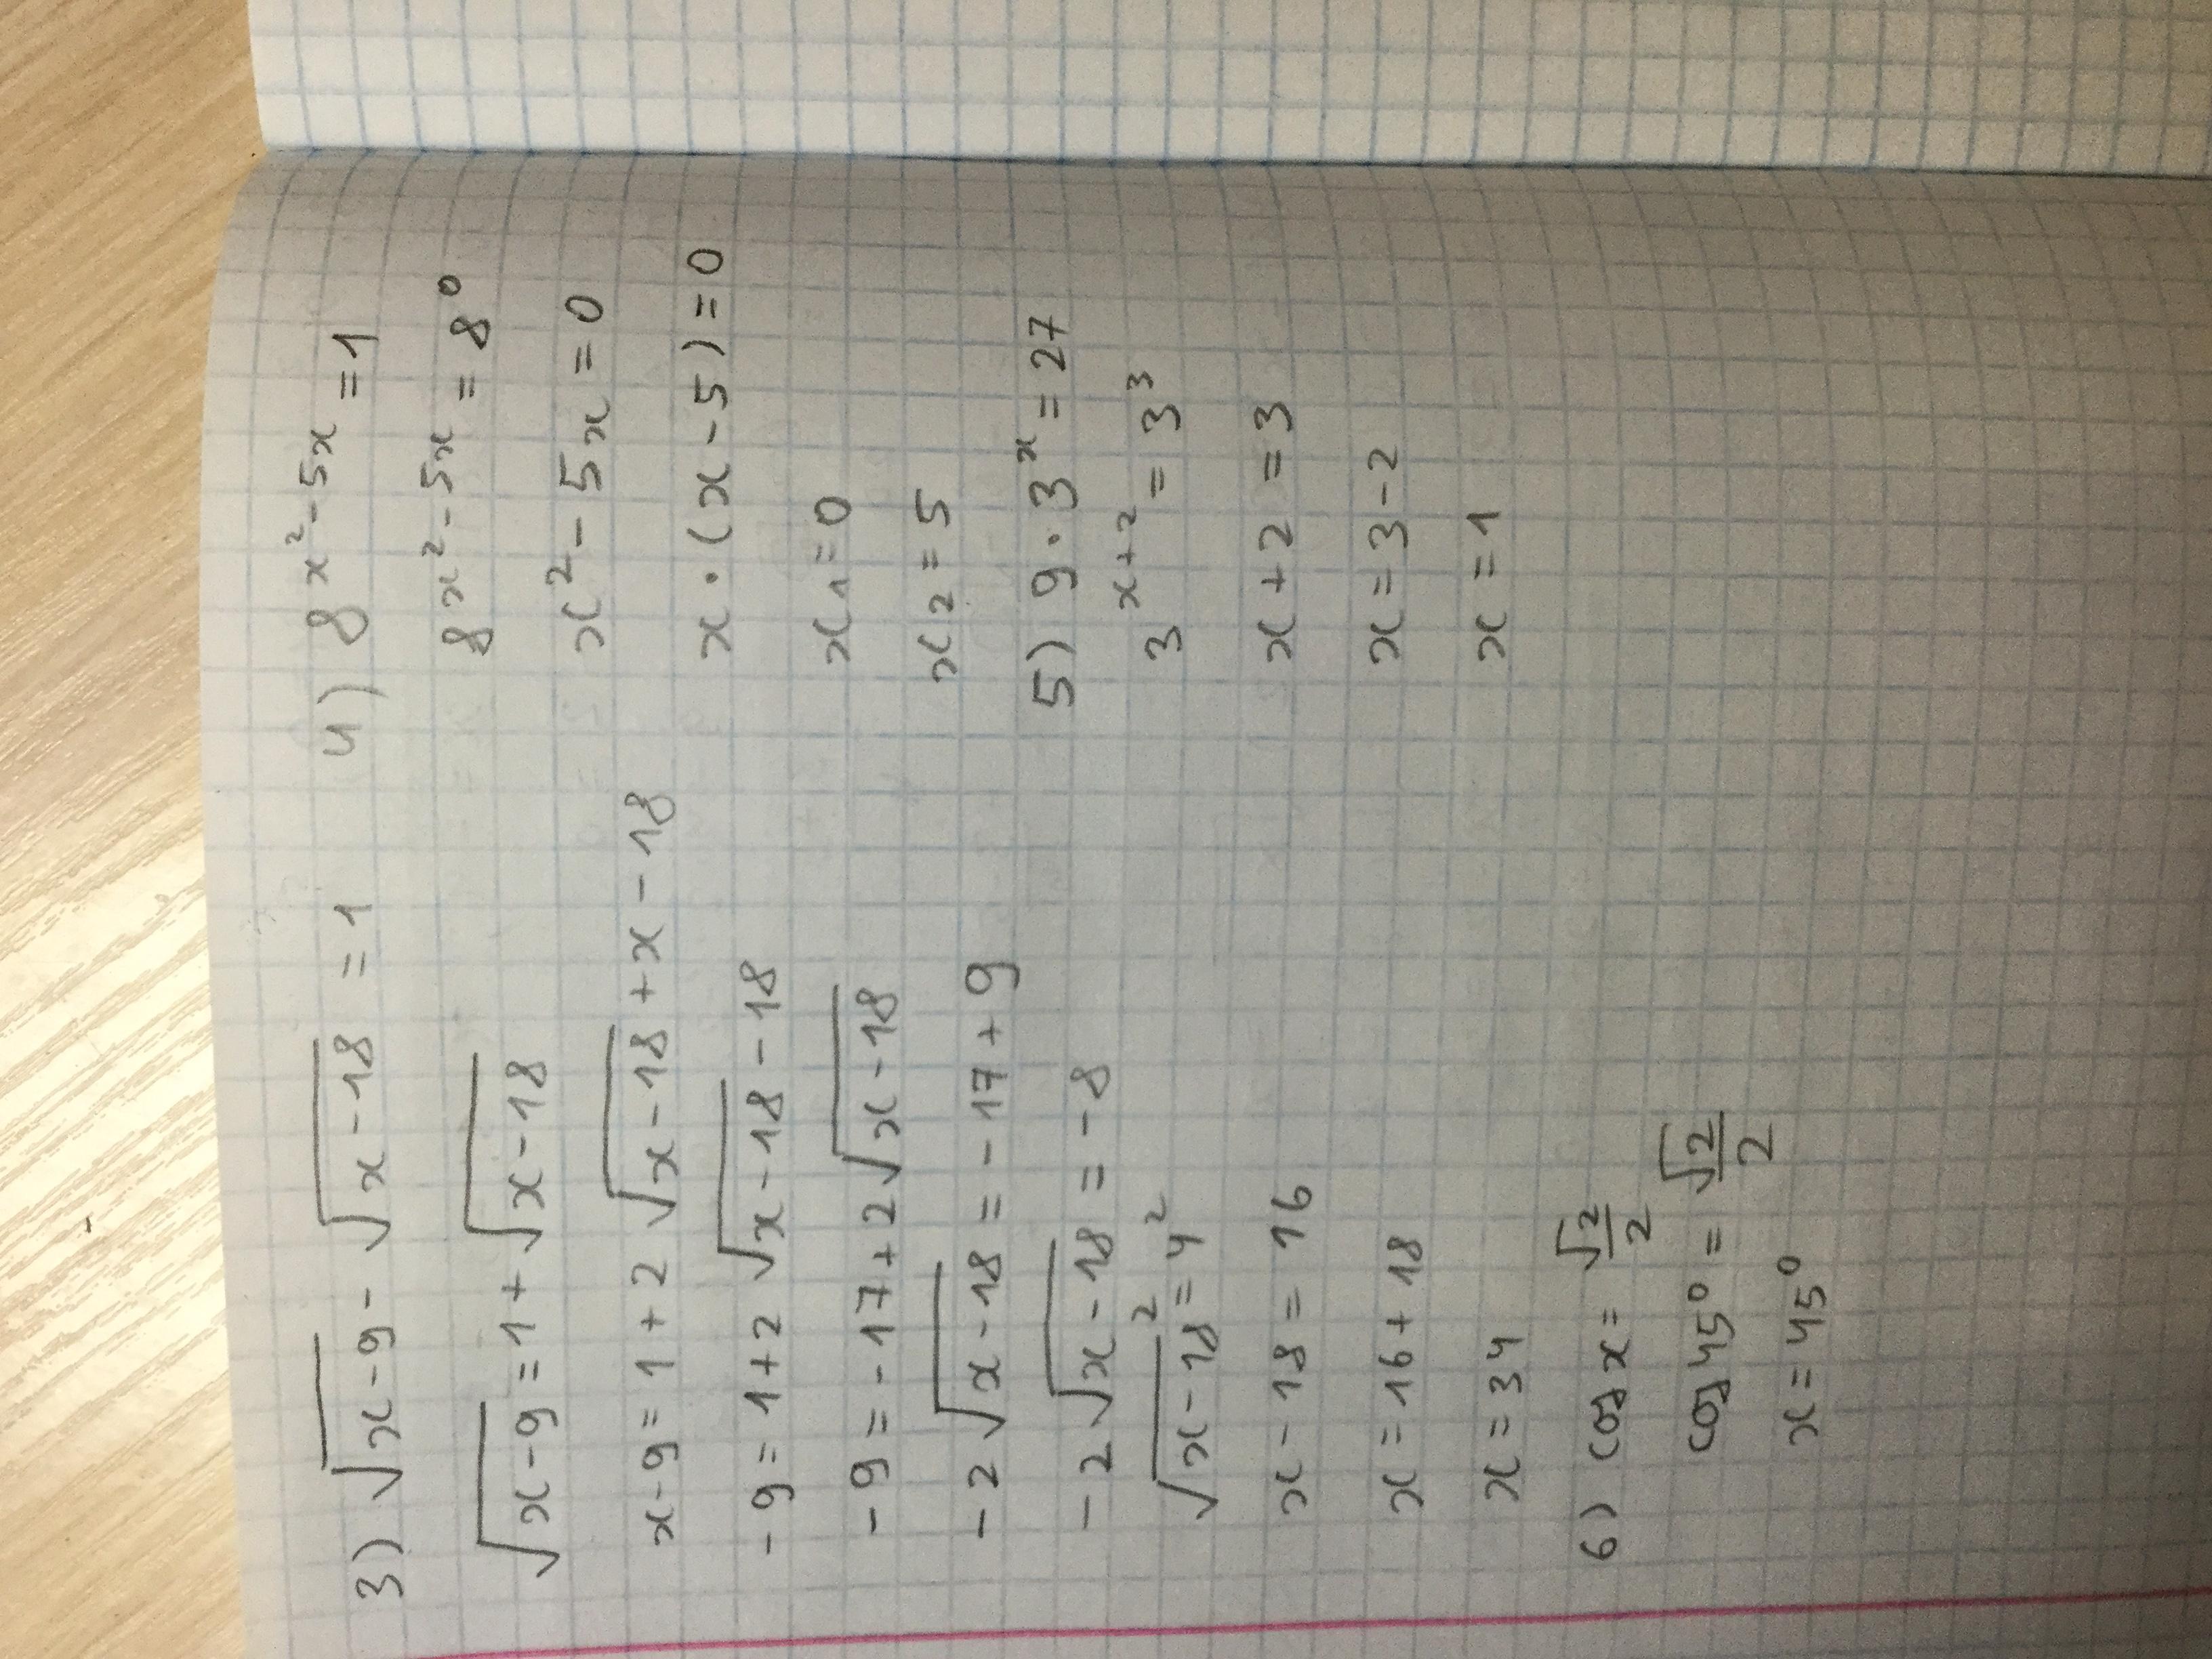 3) √(x-9) - √(x-18) = 1
√(x-9) = 1+√(x-18)
x-9 = 1+2√(x-18)+x-18
-9 = 1+2√(x-18)-18
-9 = -17+2√(x-18)
-2√(x-18) = -17+9
-2√(x-18) = -8
√(x-18)² = 4²
x-18 = 16
x = 16+18
x = 34
6) cos x = √2/2
cos 45° = √2/2
x = 45°
4) 8^(x²-5x) = 1
8^(x²-5x) = 8⁰
x²-5x = 0
x·(x-5) = 0
x₁ = 0
x₂ = 5
5) 9·3ˣ = 27
3^(x+2) = 3³
x+2 = 3
x = 3-2
x = 1